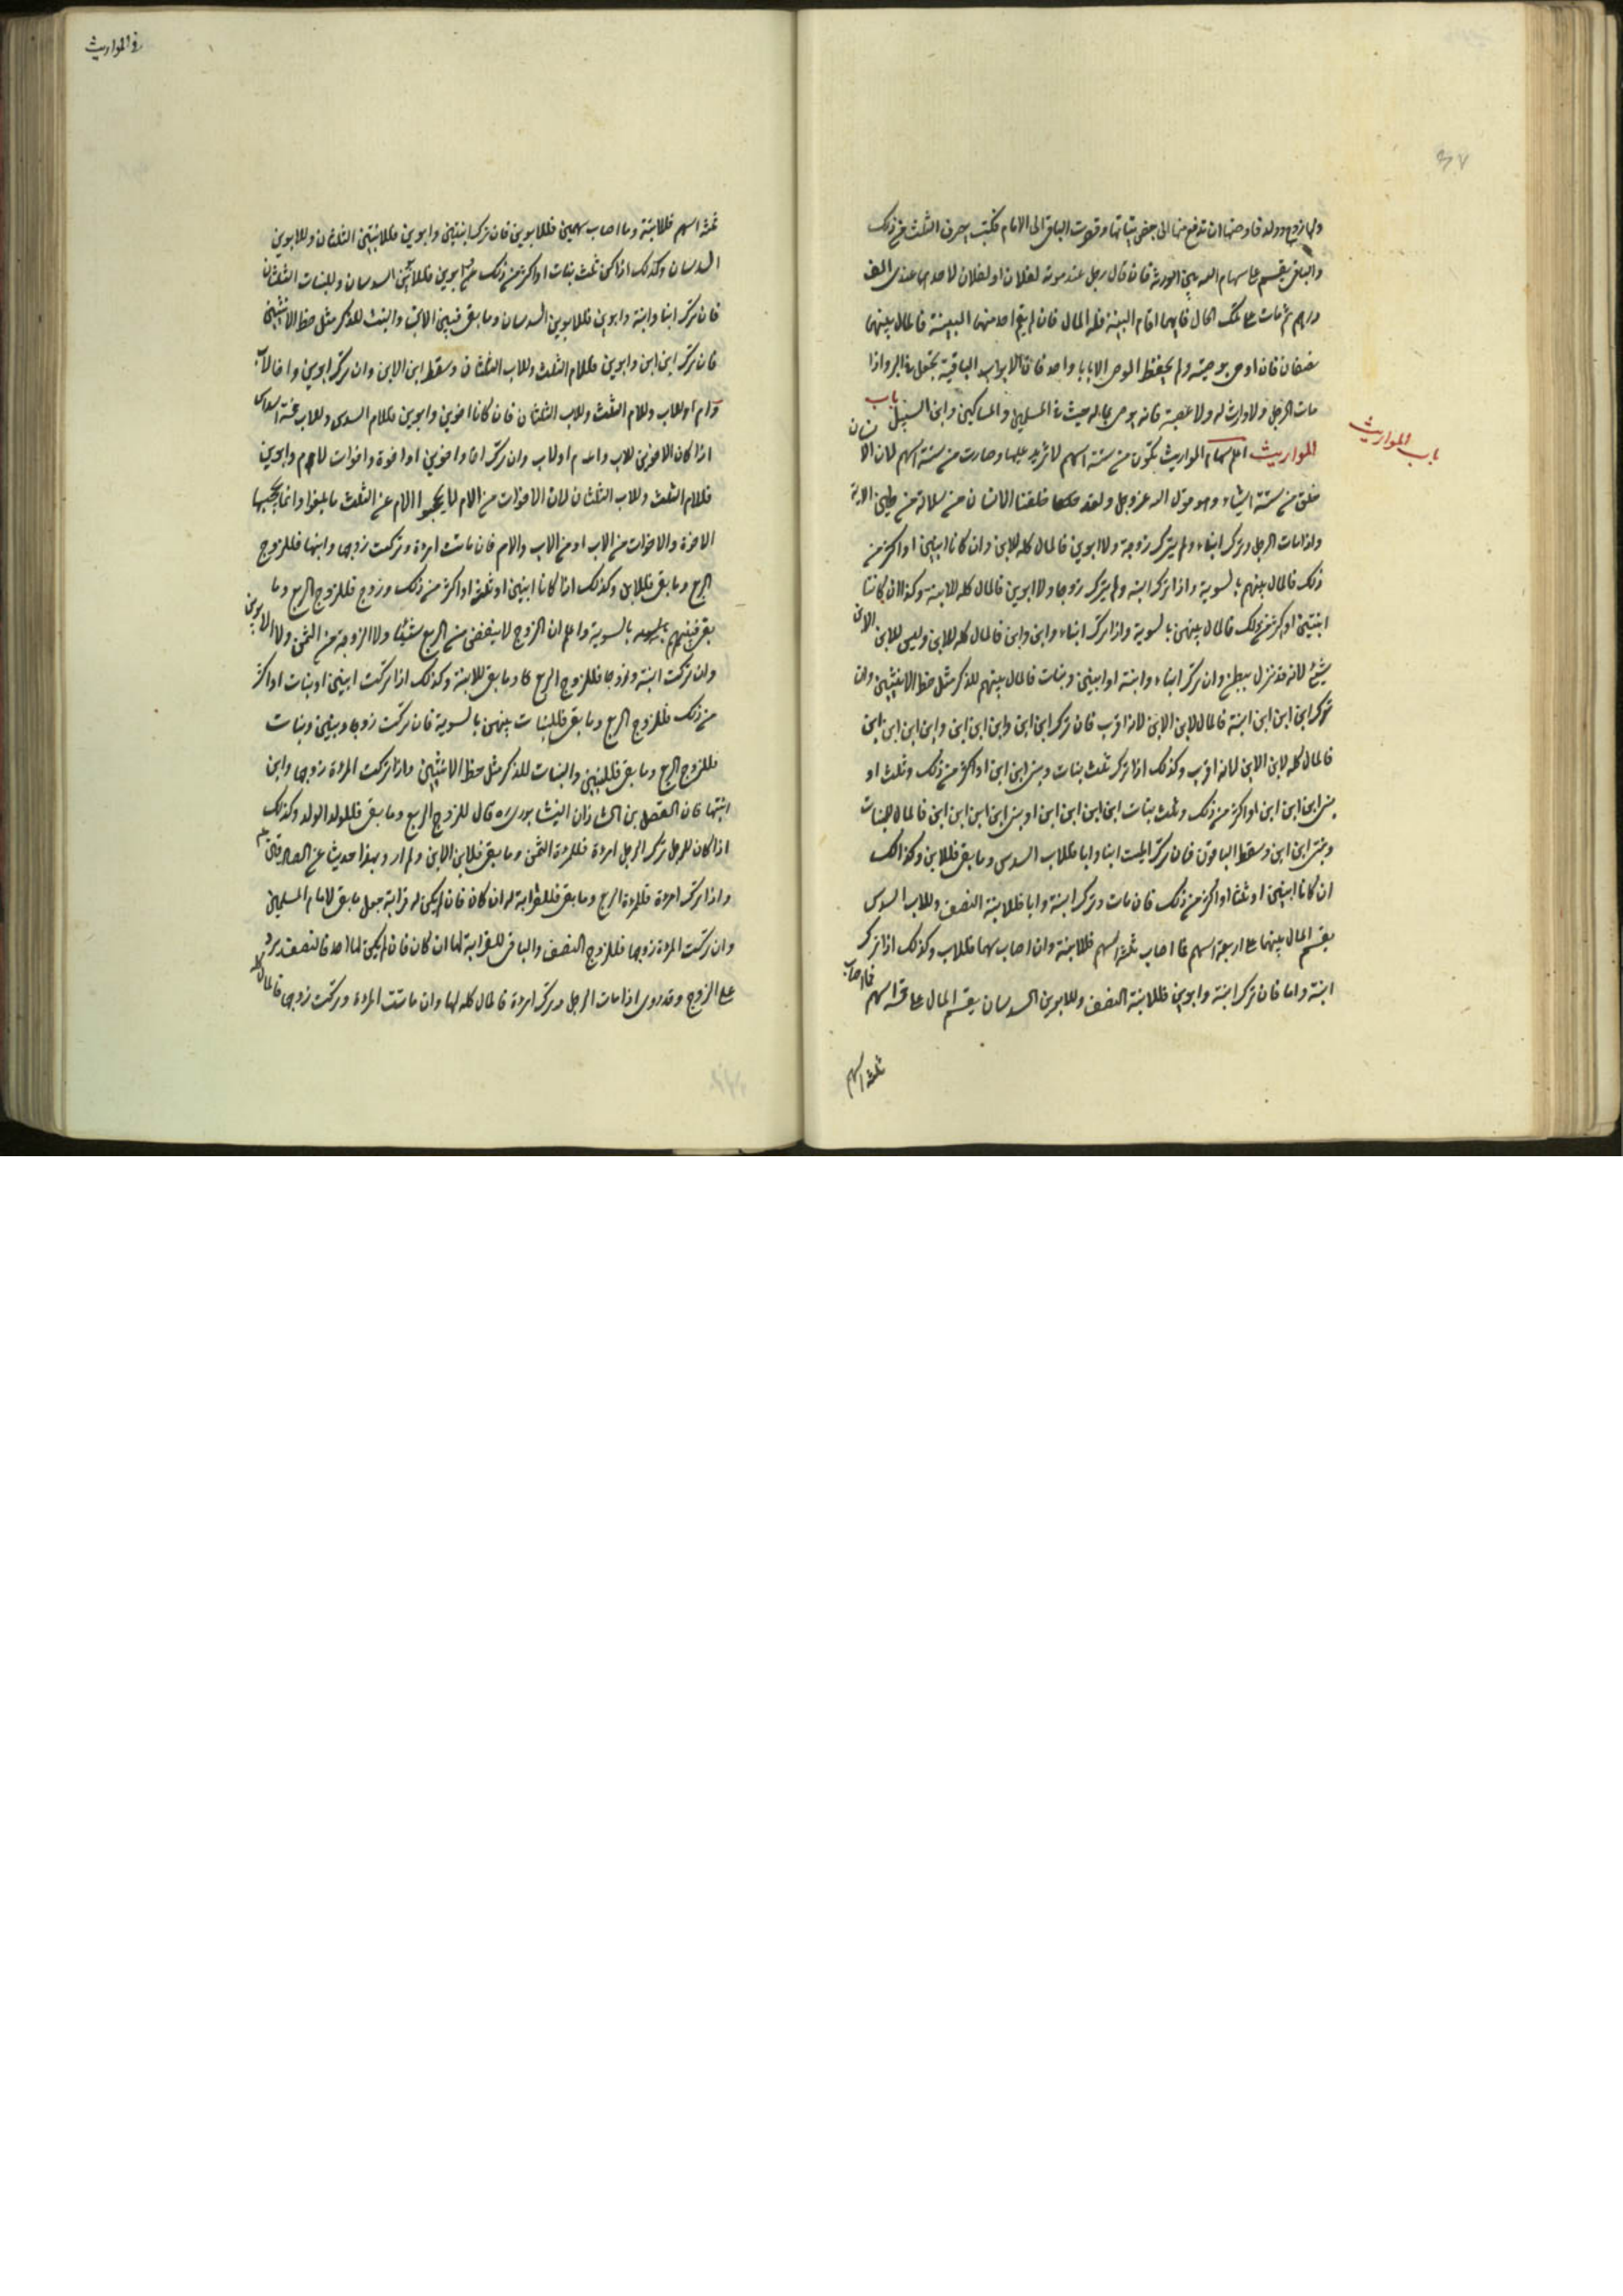 ولها زوج وولد فاوصتها ان تدفع منها الى بعض بناتها وتصرف الباقى الى الامام فكتب يصرف الثلث من ذلك
والباقى يقسم على سهام الله بين الورثة فان قال رجل عند موته لفلان او لفلان لاحدهما عندى الف
درهم ثم مات على تلك الحال فايهما اقام البينة فله المال فان لم يقم احد منهما البينة فالمال بينهما
نصفان فان اوصى بوصية ولم يحفظ الوصى الا بابا واحد فان الابواب الباقية تجعل فى البر واذا
مات الرجل ولا وارث له ولا عصبة فانه يوصى بماله حيث شاء المسلمين والمساكين وابن السبيل باب
المواريث اعلم سهام المواريث تكون من ستة اسهم لا تزيد عليها وصارت من ستة اسهم لان الانسان
باب المواريث
خلق من ستة اشياء وهو قول الله عز وجل ولقد خلقنا الانسان من سلالة من طين الاية
واذا مات الرجل وترك ابناء ولم يترك زوجة ولا ابوين فالمال كله للابن وان كانا ابنين او اكثر من
ذلك فالمال بينهم بالسوية واذا ترك ابنة ولم يترك زوجا ولا ابوين فالمال كله للابنة وكذا ان كانتا
ابنتين او اكثر من ذلك فالمال بينهن بالسوية واذا ترك ابناء وابن وابن فالمال كله للابن وليس للابن الابن
شىء لانه قد نزل ببطن وان ترك ابناء وابنة او ابنين وبنات فالمال بينهم للذكر مثل حظ الانثيين وان
ترك ابن ابن ابن ابنة فالمال لابن الابن لانه اقرب فان ترك ابن ابن وابن ابن ابن وابن ابن ابن ابن
فالمال كله لابن الابن لانه اقرب وكذلك اذا ترك ثلث بنات وبنى ابن ابن او اكثر من ذلك وثلث او
بنى ابن ابن ابن او اكثر من ذلك وثلث بنات ابن ابن ابن ابن او بنى ابن ابن ابن ابن فالمال للبنات
وبنى ابن ابن وسقط الباقون فان ترك الميت ابنا وابا فللاب السدس وما بقى فللابن وكذلك
ان كانا ابنين او ثلثا او اكثر من ذلك فان مات وترك ابنة وابا فللابنة النصف وللاب السدس
يقسم المال بينهما على اربعة اسهم فما اصاب ثلثة اسهم فللابنة وان اصاب سهما فللاب وكذلك اذا ترك
ابنة واما فان ترك ابنة وابوين فللابنة النصف وللابوين السدسان يقسم المال على خمسة اسهم فما اصاب
ثلثة اسهم
فى المواريث
ثلثة اسهم فللابنة وما اصاب سهمين فللابوين فان ترك ابنتين وابوين فللابنتين الثلثان وللابوين
السدسان وكذلك اذا كن ثلث بنات او اكثر من ذلك مع ابوين فللابوين السدسان وللبنات الثلثان
فان ترك ابنا وابنة وابوين فللابوين السدسان وما بقى فبين الابن والبنت للذكر مثل حظ الانثيين
فان ترك ابن ابن وابوين فللام الثلث وللاب الثلثان وسقط ابن الابن وان ترك ابوين واخا لاب
وام او للاب وللام الثلث وللاب الثلثان فان كانا اخوين وابوين فللام السدس وللاب خمسة اسداس
اذا كان الاخوين للاب وام او لاب وان ترك اخا واخوين او اخوة واخوات لام وابوين
فللام الثلث وللاب الثلثان لان الاخوات من الام لا يحجبوا الام عن الثلث ما بلغوا وانما يحجبها
الاخوة والاخوات من الاب او من الاب والام فان ماتت امراة وتركت زوجها وابنها فللزوج
الربع وما بقى فللابن وكذلك اذا كانا ابنين او ثلثة او اكثر من ذلك وزوج فللزوج الربع وما
بقى فبينهم بالسوية واعلم ان الزوج لا ينقص من الربع شيئا ولا الزوجة من الثمن ولا الابوين
وان تركت ابنة وزوجا فللزوج الربع وما بقى للابنة وكذلك اذا تركت ابنين او بنات او اكثر
من ذلك فللزوج الربع وما بقى فللبنات بينهن بالسوية فان تركت زوجا وبنين وبنات
فللزوج الربع وما بقى فللبنين والبنات للذكر مثل حظ الانثيين واذا تركت المراة زوجها وابن
ابنتها فان الفضل بن الشاذان النيشابورى ره قال للزوج الربع وما بقى فللولد الولد وكذلك
اذا كان للرجل ترك الرجل امراة فللمراة الثمن وما بقى فلابن الابن ولم ارو بهذا حديث عن الصادقين ع
واذا ترك امراة فللمراة الربع وما بقى فللقرابة له ان كان فان لم يكن له قرابة جعل ما بقى لامام المسلمين
وان تركت المراة زوجها فللزوج النصف والباقى للقرابة لها ان كان فان لم يكن لها احد فالنصف يرد
على الزوج وقد روى اذا مات الرجل وترك امراة فالمال كله لها وان ماتت المراة وتركت زوجها فالمال كله